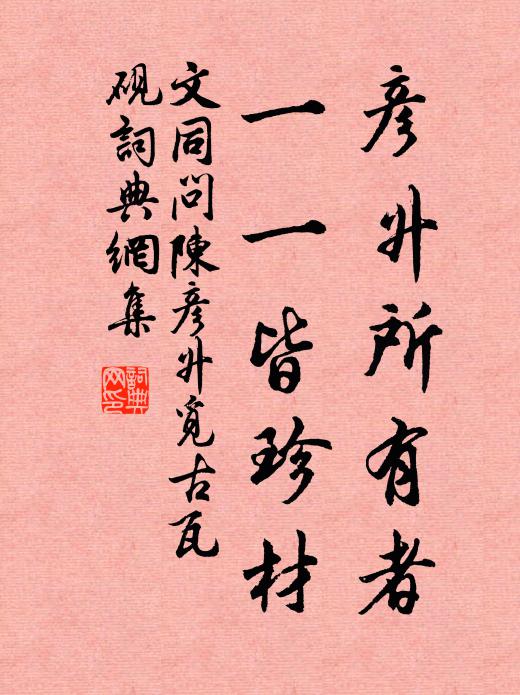 彦升所有者
一一皆珍材
文同問陳彦升覓古瓦
硯詞典網集
詞典
网印